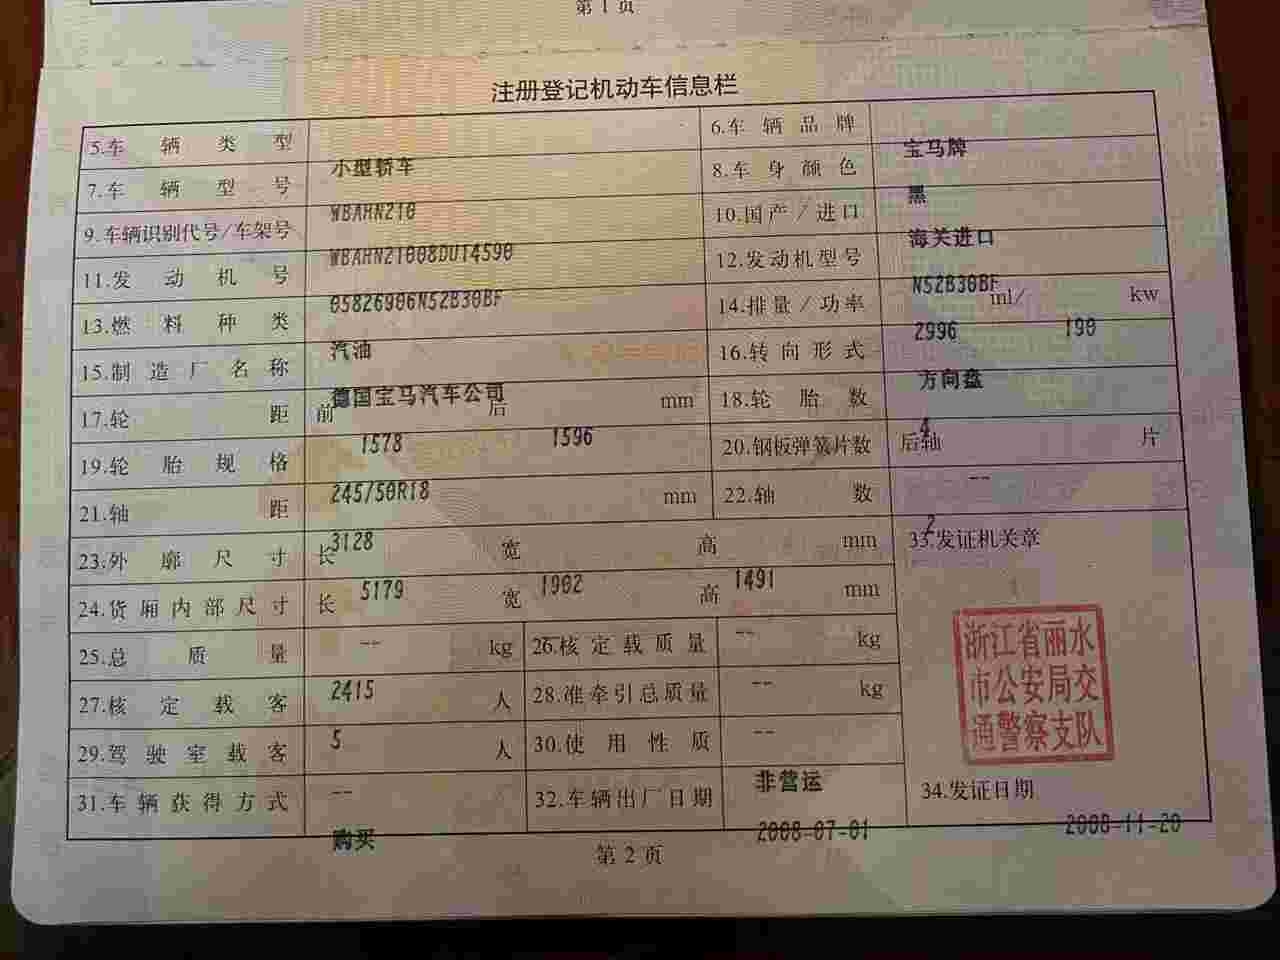 第 1 页
注册登记机动车信息栏
5.车辆类型 小型轿车 6.车辆品牌 宝马牌
7.车辆型号 WBAHN210 8.车身颜色 黑
9.车辆识别代号/车架号 WBAHN21008DU14590 10.国产/进口 海关进口
11.发动机号 05826906N52B30BF 12.发动机型号 N52B30BF
13.燃料种类 汽油 14.排量/功率 2996 ml/ 190 kw
15.制造厂名称 德国宝马汽车公司 16.转向形式 方向盘
17.轮距 前 1578 后 1596 mm 18.轮胎数 4
19.轮胎规格 245/50R18 20.钢板弹簧片数 后轴 -- 片
21.轴距 3128 mm 22.轴数 2
23.外廓尺寸 长 5179 宽 1902 高 1491 mm 33.发证机关章
24.货厢内部尺寸 长 -- 宽 -- 高 mm
25.总质量 2415 kg 26.核定载质量 -- kg
27.核定载客 5 人 28.准牵引总质量 -- kg
29.驾驶室载客 -- 人 30.使用性质 非营运
31.车辆获得方式 购买 32.车辆出厂日期 2008-07-01 34.发证日期 2008-11-20
浙江省丽水
市公安局交
通警察支队
第 2 页